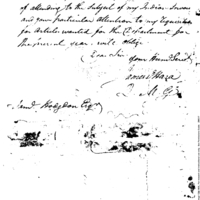 of attending to the subject of my Indian Invoice
and your particular attention to my Requisition
for Articles wanted for the Department for
the present year will oblige
Dear Sir your Hum Servt
James OHara
Q. M. Gl
Saml Hodgdon Esqr